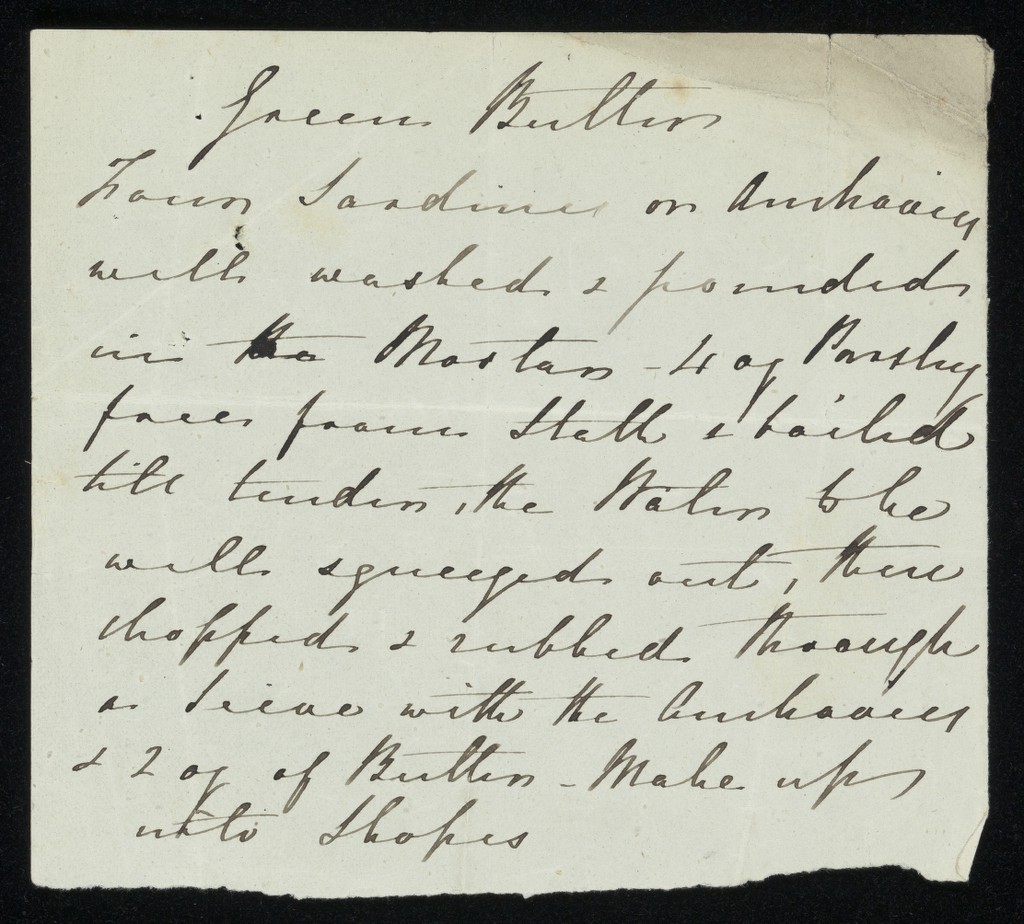 Green Butter
Four Sardines or Anchovies
well washed & pounded
in the Mortar - 4 oz Parsley
free from Stalk & boiled
till tender, the Water to be
well squeezed out, then
chopped & rubbed through
a Seive with the Anchovies
& 2 oz of Butter - Make up
into Shapes